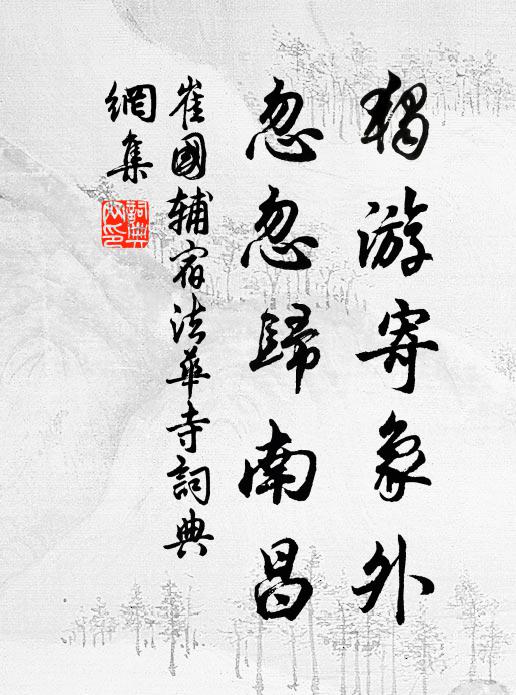 獨游寄象外
忽忽歸南昌
崔國輔宿法華寺詞典
網集
詞典網印